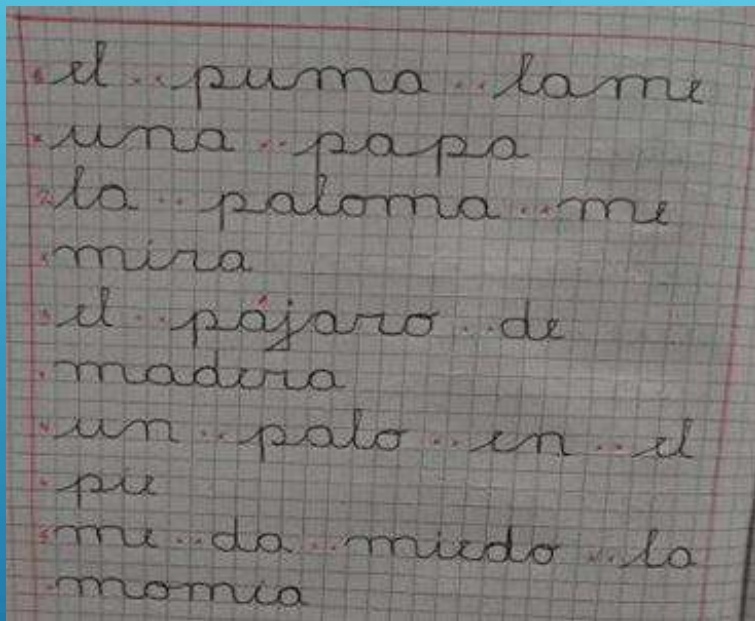 el puma lame
una papa
la paloma me
mira
el pájaro de
madera
un palo en el
pie
me da miedo la
momia